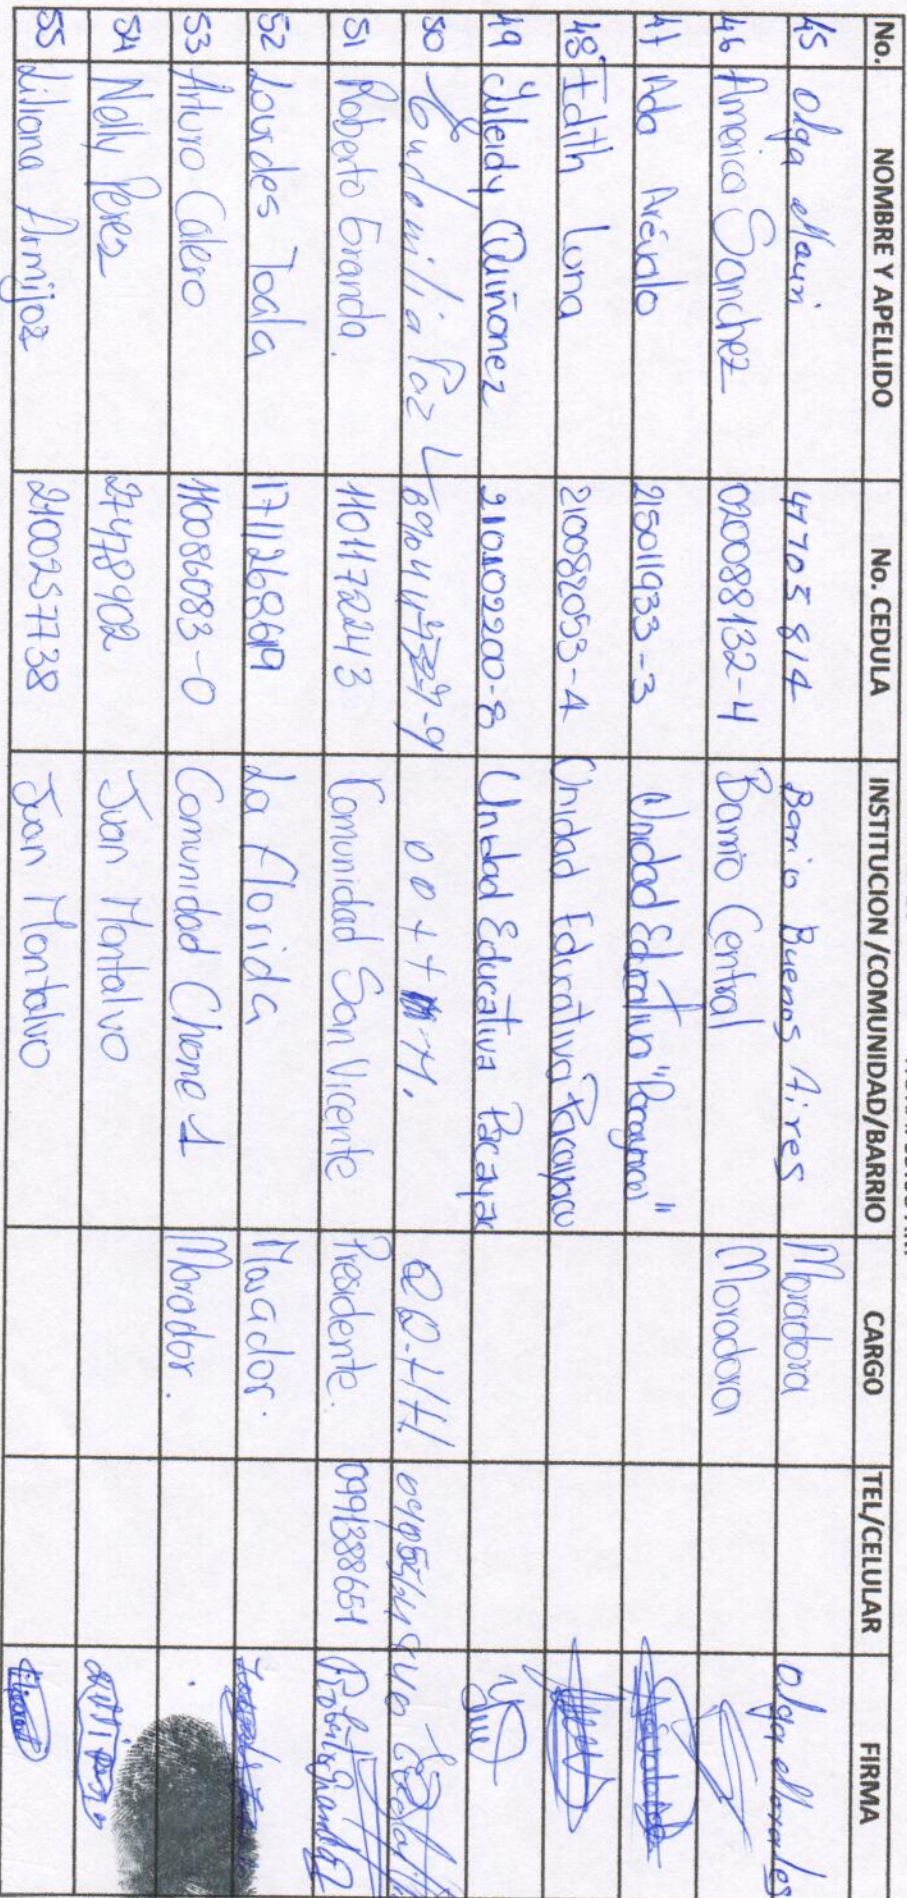 No. NOMBRE Y APELLIDO No. CEDULA INSTITUCION /COMUNIDAD/BARRIO CARGO TEL/CELULAR FIRMA
45 Olga Mauri 47705814 Barrio Buenos Aires Moradora Olga Morales
46 America Sanchez 020088132-4 Barrio Central Moradora
47 Ada Arévalo 215011933-3 Unidad Educativa "Pacayacu"
48 Edith Luna 210082053-4 Unidad Educativa Pacayacu
49 Yileidy Quiñonez 210102200-8 Unidad Educativa Pacayac
50 Paz L
51 Roberto Granda. 1101172243 Comunidad San Vicente Presidente. 0991388651
52 Lourdes Toala 1711268619 La Florida Morador.
53 Arturo Calero 110086083-0 Comunidad Chone 1 Morador.
54 Nelly Perez 27478902 Juan Montalvo
55 Liliana Armijos 2100257738 Juan Montalvo